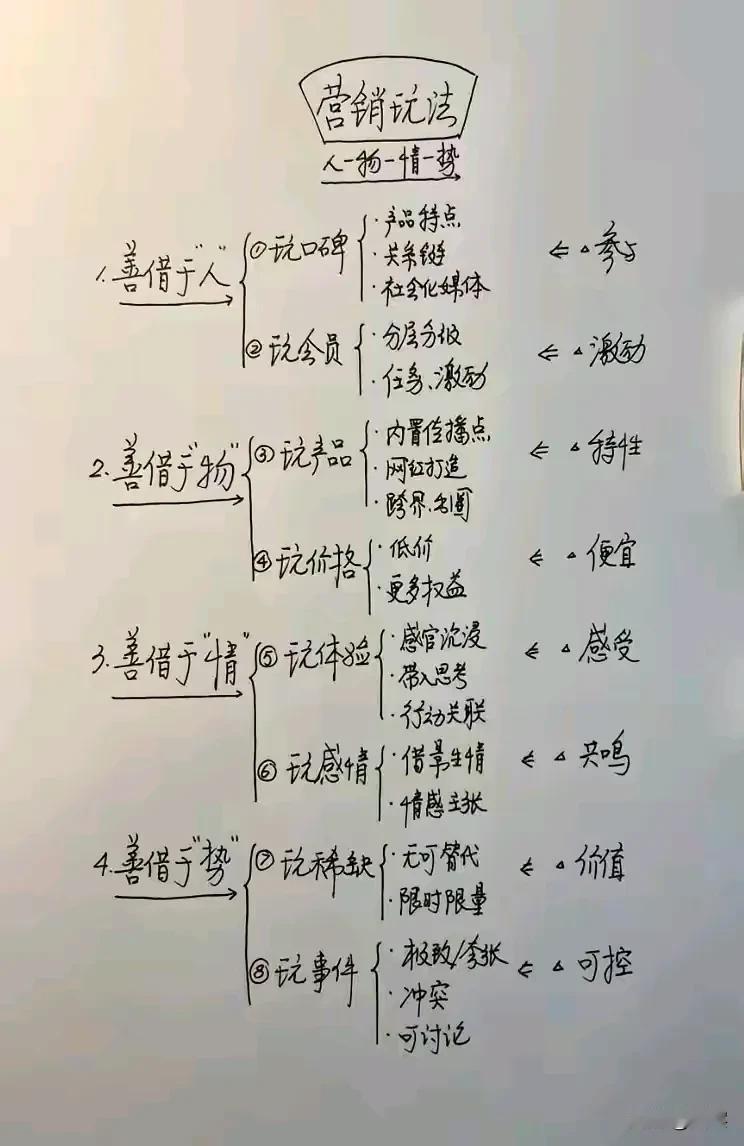 营销玩法
人-物-情-势
1. 善借于"人"
①玩口碑
·产品特点
·关系链
·社会化媒体
⇐ △参与
②玩会员
·分层分级
·任务、激励
⇐ △激励
2. 善借于"物"
③玩产品
·内置传播点
·网红打造
·跨界、出圈
⇐ △特性
④玩价格
·低价
·更多权益
⇐ △便宜
3. 善借于"情"
⑤玩体验
·感官沉浸
·带入思考
·行动关联
⇐ △感受
⑥玩感情
·借景生情
·情感主张
⇐ △共鸣
4. 善借于"势"
⑦玩稀缺
·无可替代
·限时限量
⇐ △价值
⑧玩事件
·极致/夸张
·冲突
·可讨论
⇐ △可控